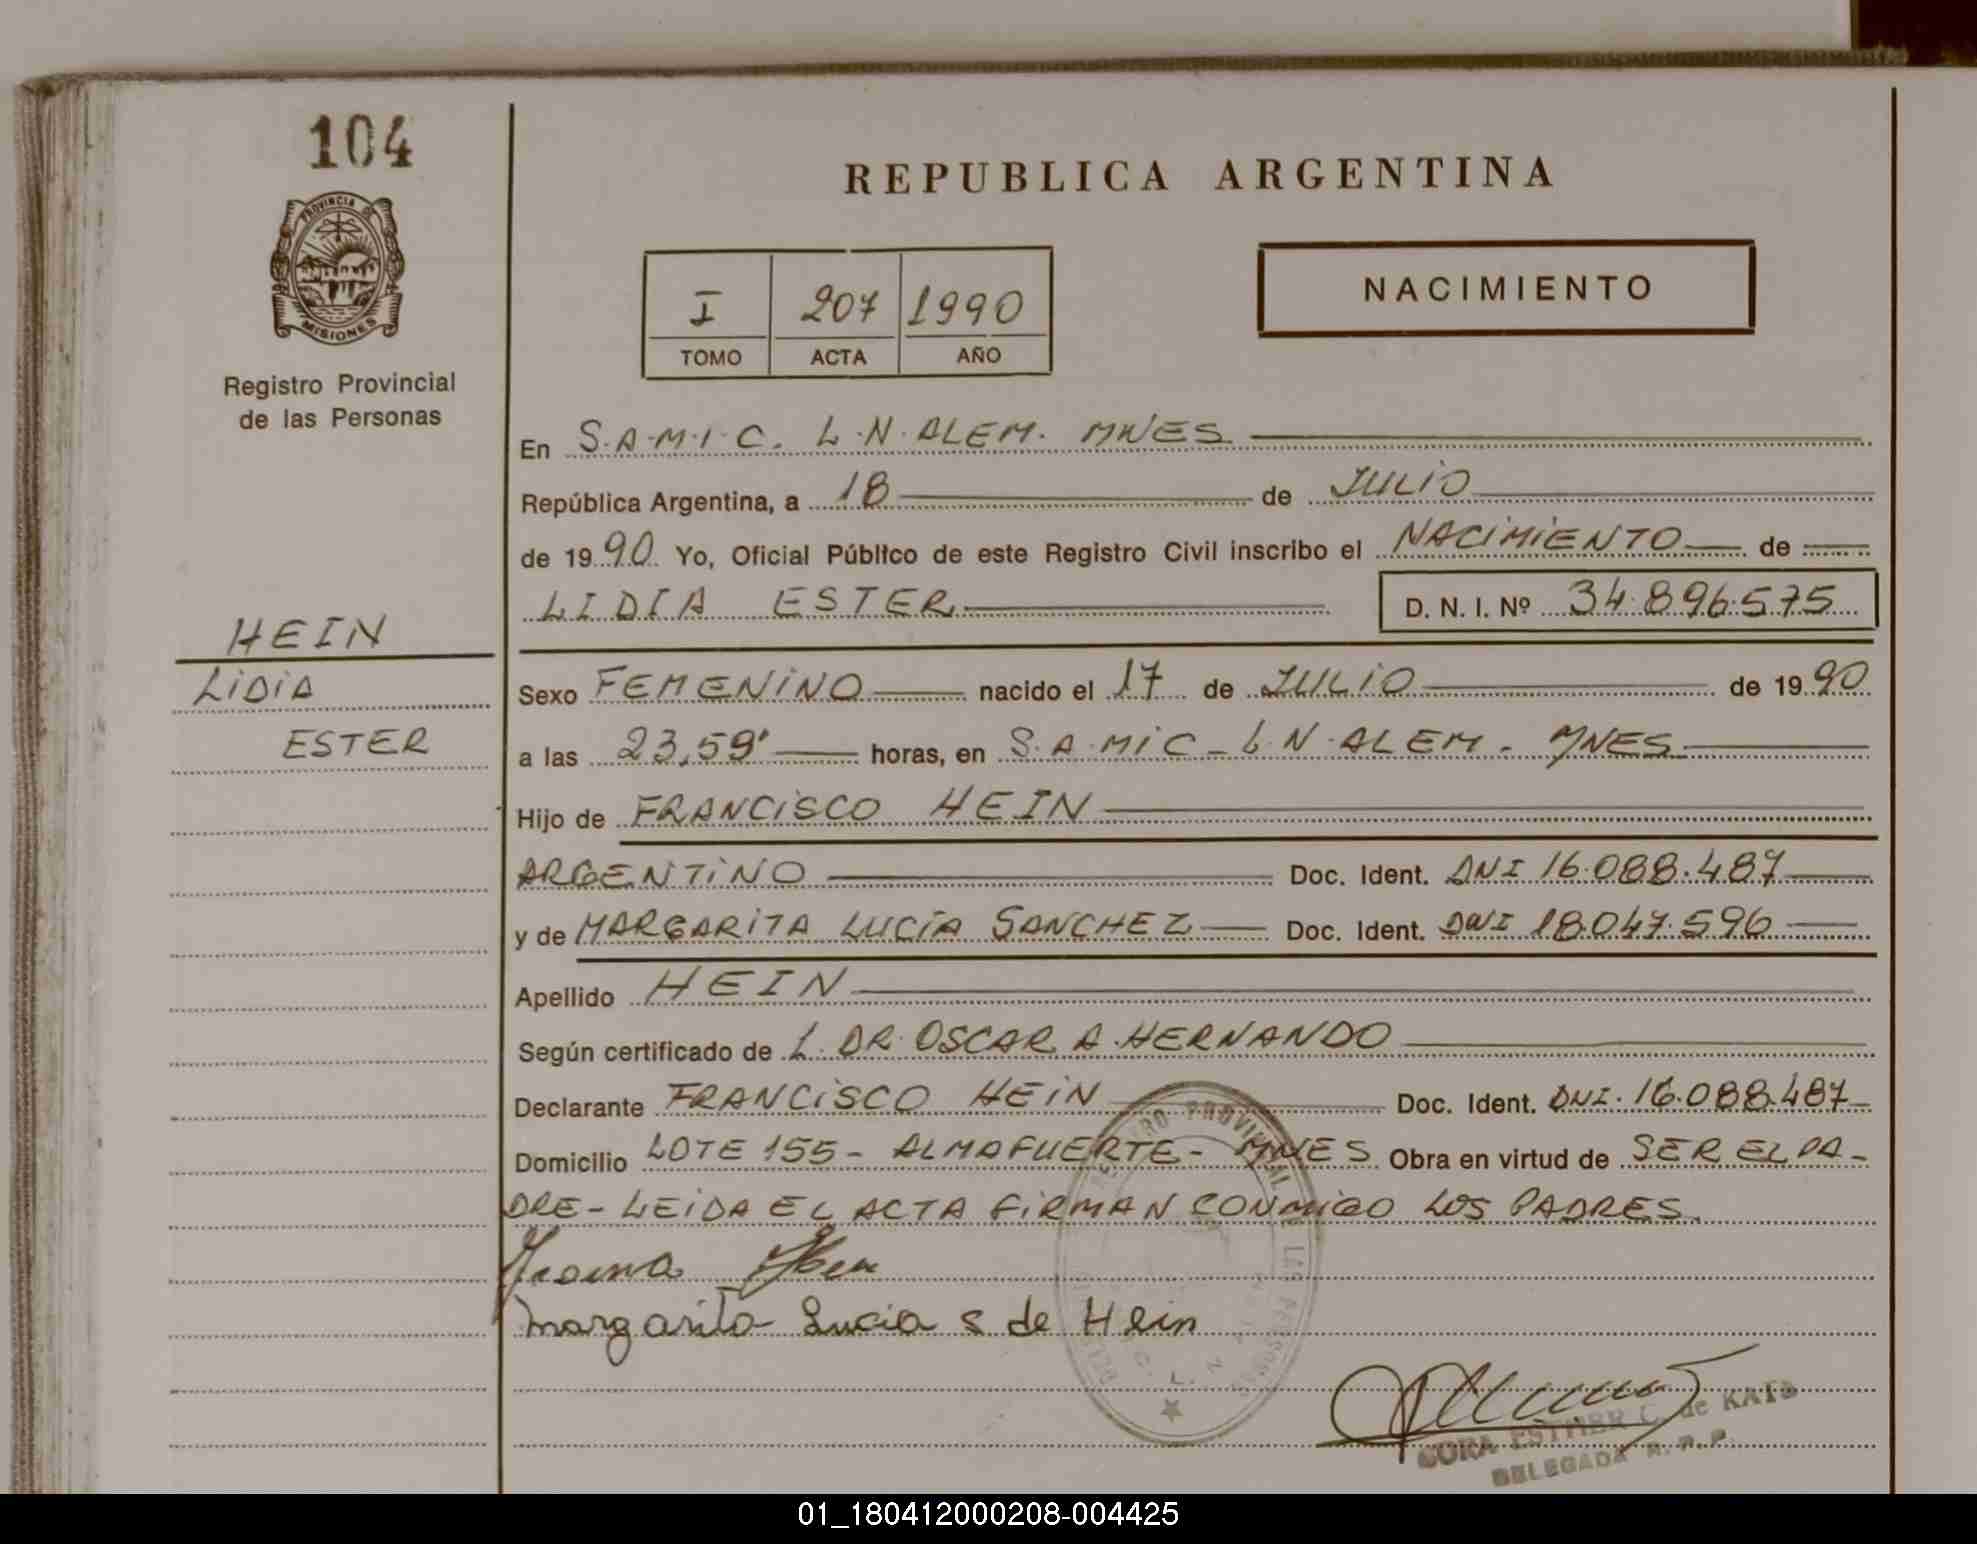 104
PROVINCIA DE
MISIONES
Registro Provincial
de las Personas
HEIN
LIDIA
ESTER
REPUBLICA ARGENTINA
I 207 1990
TOMO ACTA AÑO
NACIMIENTO
En S.A.M.I.C. L.N.ALEM. MNES
República Argentina, a 18 de JULIO
de 1990 Yo, Oficial Público de este Registro Civil inscribo el NACIMIENTO de
LIDIA ESTER D. N. I. Nº 34.896.575
Sexo FEMENINO nacido el 17 de JULIO de 1990
a las 23,59' horas, en S.A.MIC - L.N.ALEM - MNES
Hijo de FRANCISCO HEIN
ARGENTINO Doc. Ident. DNI 16.088.487
y de MARGARITA LUCÍA SANCHEZ Doc. Ident. DNI 18.047.596
Apellido HEIN
Según certificado de L. DR. OSCAR A. HERNANDO
Declarante FRANCISCO HEIN Doc. Ident. DNI. 16.088.487
Domicilio LOTE 155 - ALMAFUERTE - MNES Obra en virtud de SER EL PA-
DRE - LEIDA EL ACTA FIRMAN CONMIGO LOS PADRES.
Margarita Lucia S de Hein
REGISTRO PROVINCIAL DE LAS PERSONAS
CORA ESTHER C. de KATZ
DELEGADA R. P. P.
01_180412000208-004425